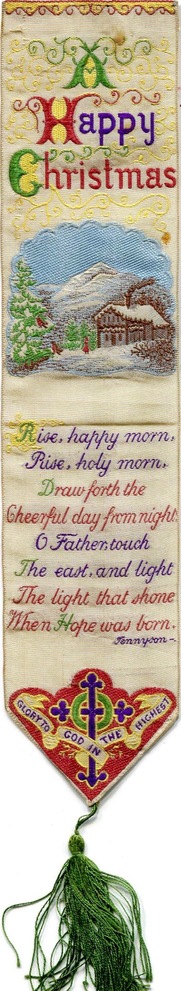 A
Happy
Christmas
Rise, happy morn,
Rise, holy morn,
Draw forth the
Cheerful day from night,
O Father, touch
The east, and light
The light that shone
When Hope was born.
Tennyson-.
GLORY TO GOD IN THE HIGHEST